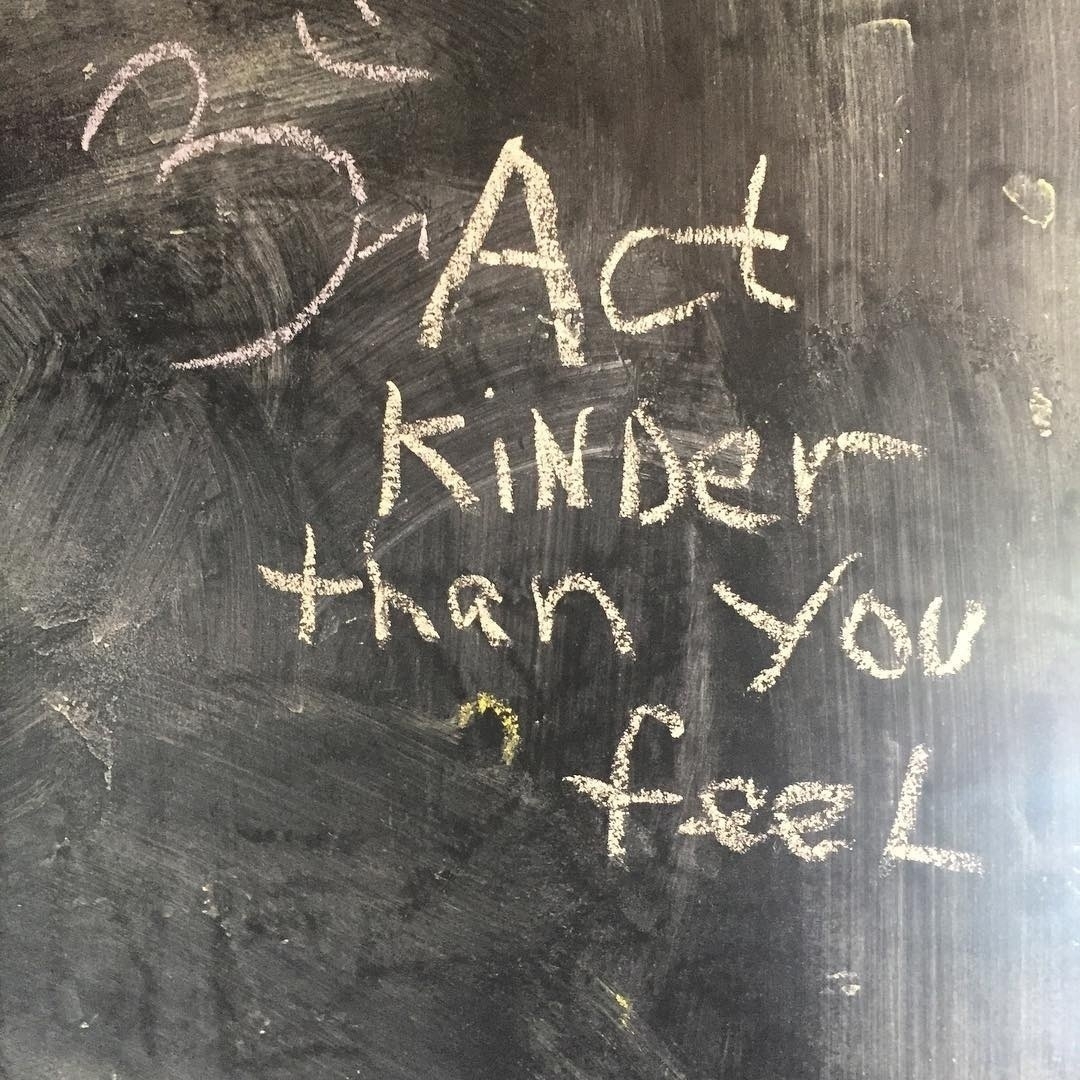 Act
KiNDer
than You
feeL